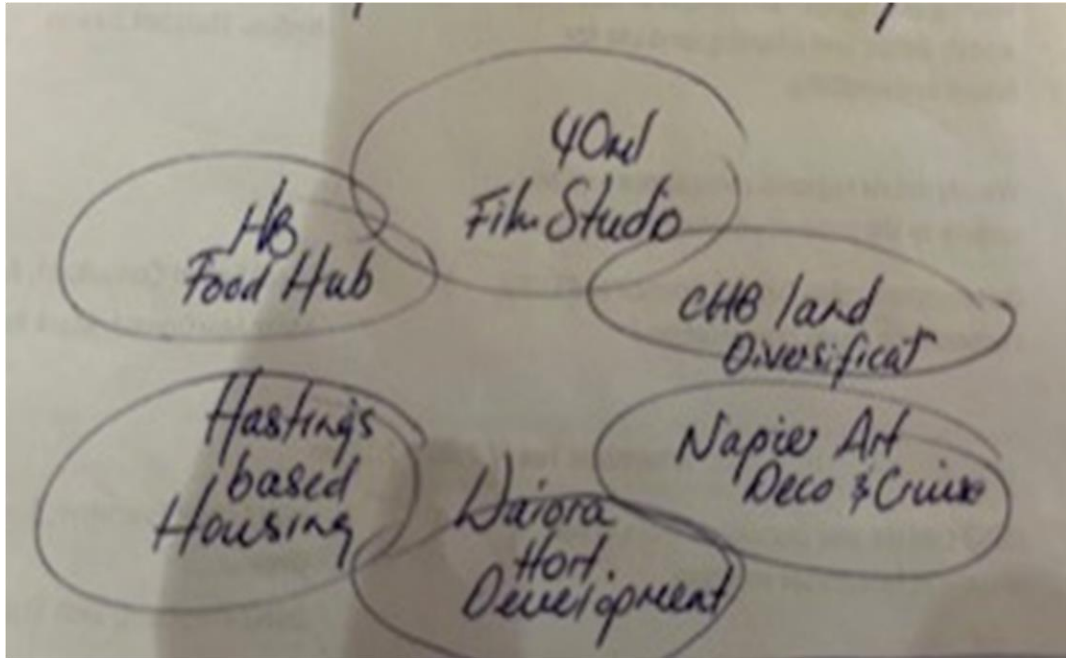 40ml
Film Studio
HB
Food Hub
CHB land
Diversificat
Hastings
based
Housing
Napier Art
Deco & Cruise
Waiora
Hort.
Development